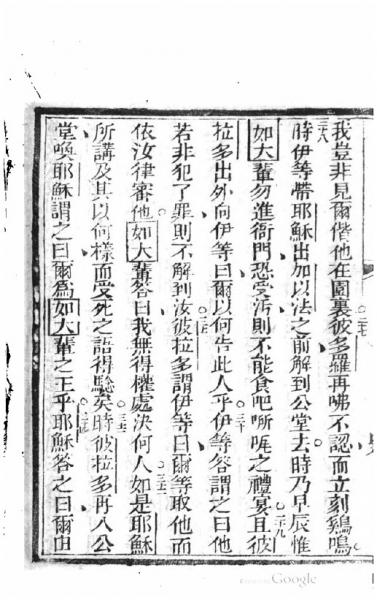 我豈非見爾偕他在園裏彼多羅再咈不認而立刻鷄鳴
二八時伊等帶耶穌出加以法之前解到公堂去時乃早辰惟
如大輩勿進衙門恐受污則不能食吧嘶㗑之禮宴二九且彼
拉多出外向伊等曰爾以何告此人乎三十伊等答謂之曰他
若非犯了罪則不解到汝三一彼拉多謂伊等曰爾等取他而
依汝律審他如大輩答曰我無得權處决何人三二如是耶穌
所講及其以何樣而受死之語得騐矣三三時彼拉多再入公
堂喚耶穌謂之曰爾為如大輩之王乎三四耶穌答之曰爾由
Google